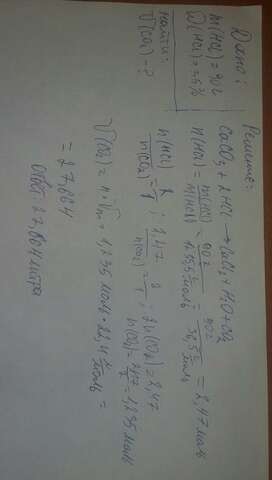 Дано:
m(HCl)=90г
ω(HCl)=35%
Найти:
V(CO₂)-?
Решение:
CaCO₃ + 2HCl → CaCl₂ + H₂O + CO₂
n(HCl) = m(HCl) / M(HCl) = 90г / 36,5 г/моль = 2,47 моль
n(HCl) / n(CO₂) = 2 / 1 ; 2,47 / n(CO₂) = 2 / 1 ; 2n(CO₂) = 2,47
n(CO₂) = 2,47 / 2 = 1,235 моль
V(CO₂) = n·Vm = 1,235 моль · 22,4 л/моль =
= 27,664
Ответ: 27,804 литра